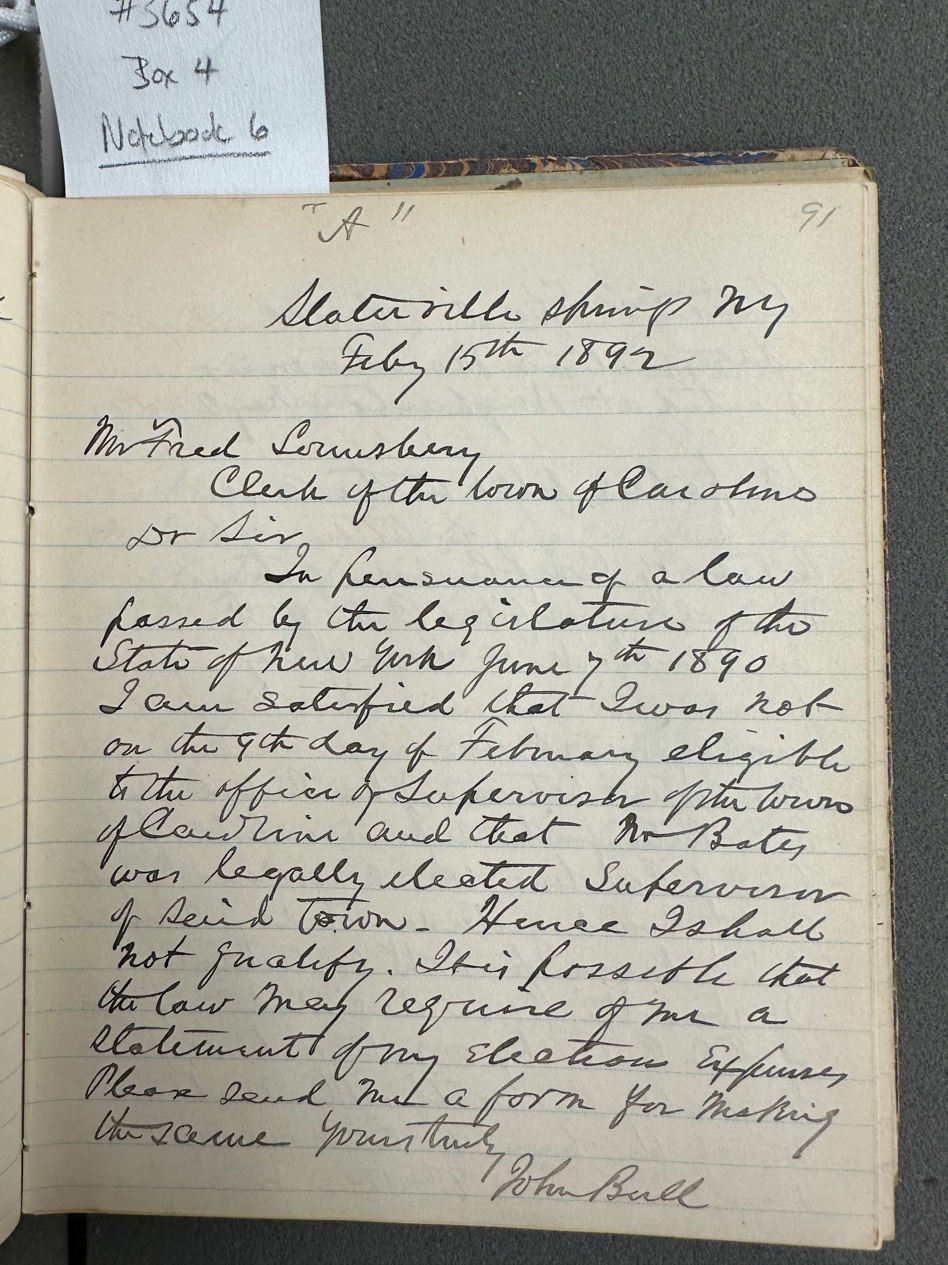 #3654
Box 4
Notebook 6
"A"
91
Slaterville Springs NY
Feby 15th 1892
Mr Fred Lounsbery
Clerk of the town of Caroline
Dr Sir
In persuance of a law
passed by the legislature of the
State of New York June 7th 1890
I am satisfied that I was not
on the 9th day of February eligible
to the office of Supervisor of the town
of Caroline and that Mr Bates
was legally elected Supervisor
of said Town - Hence I shall
not qualify. It is possible that
the law may require of me a
statement of my election Expenses
Please send me a form for making
the same Yours truly
John Bull